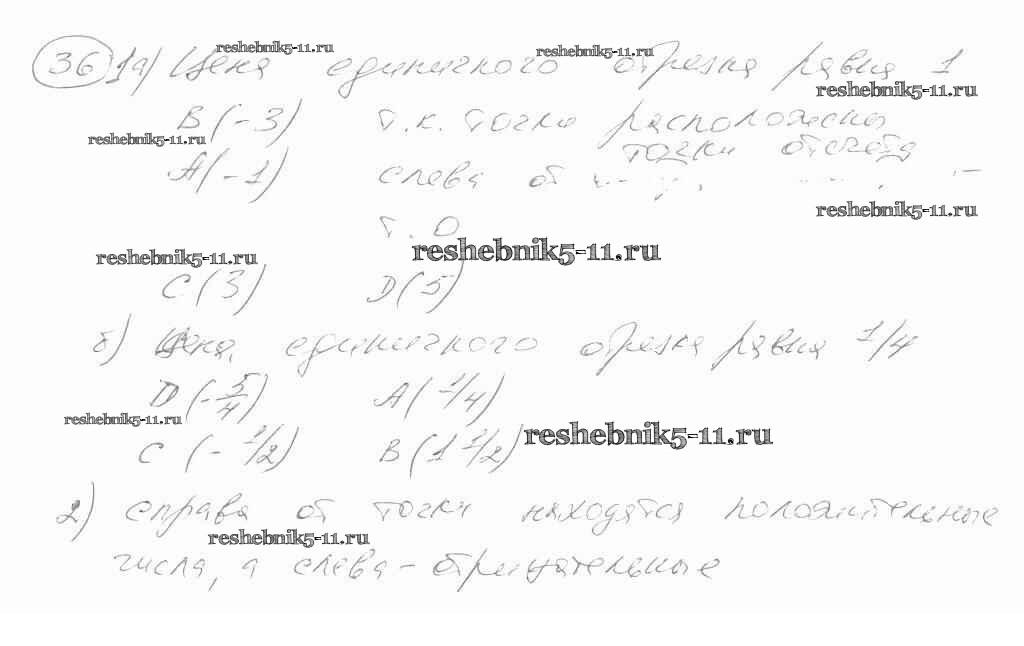 reshebnik5-11.ru reshebnik5-11.ru
36 1а) Цена единичного отрезка равна 1
reshebnik5-11.ru
B(-3) т.к. точки расположены
reshebnik5-11.ru
точки отсчета
A(-1) слева от
reshebnik5-11.ru
т. О
reshebnik5-11.ru reshebnik5-11.ru
C(3) D(5)
б) Цена единичного отрезка равна 1/4
D(-5/4) A(1/4)
reshebnik5-11.ru
reshebnik5-11.ru
C(-1/2) B(1 1/2)
2) справа от точки находятся положительные
reshebnik5-11.ru
числа, а слева - отрицательные